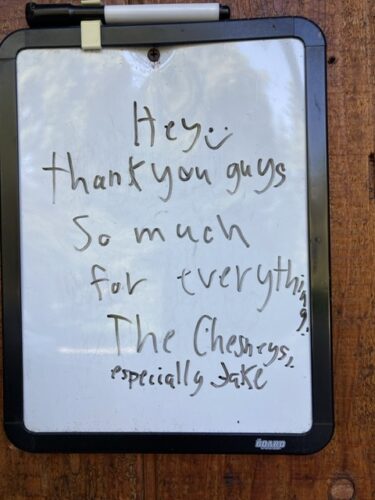 Hey :)
thank you guys
So much
for everything.
The Chesneys,
especially Jake
BOARD